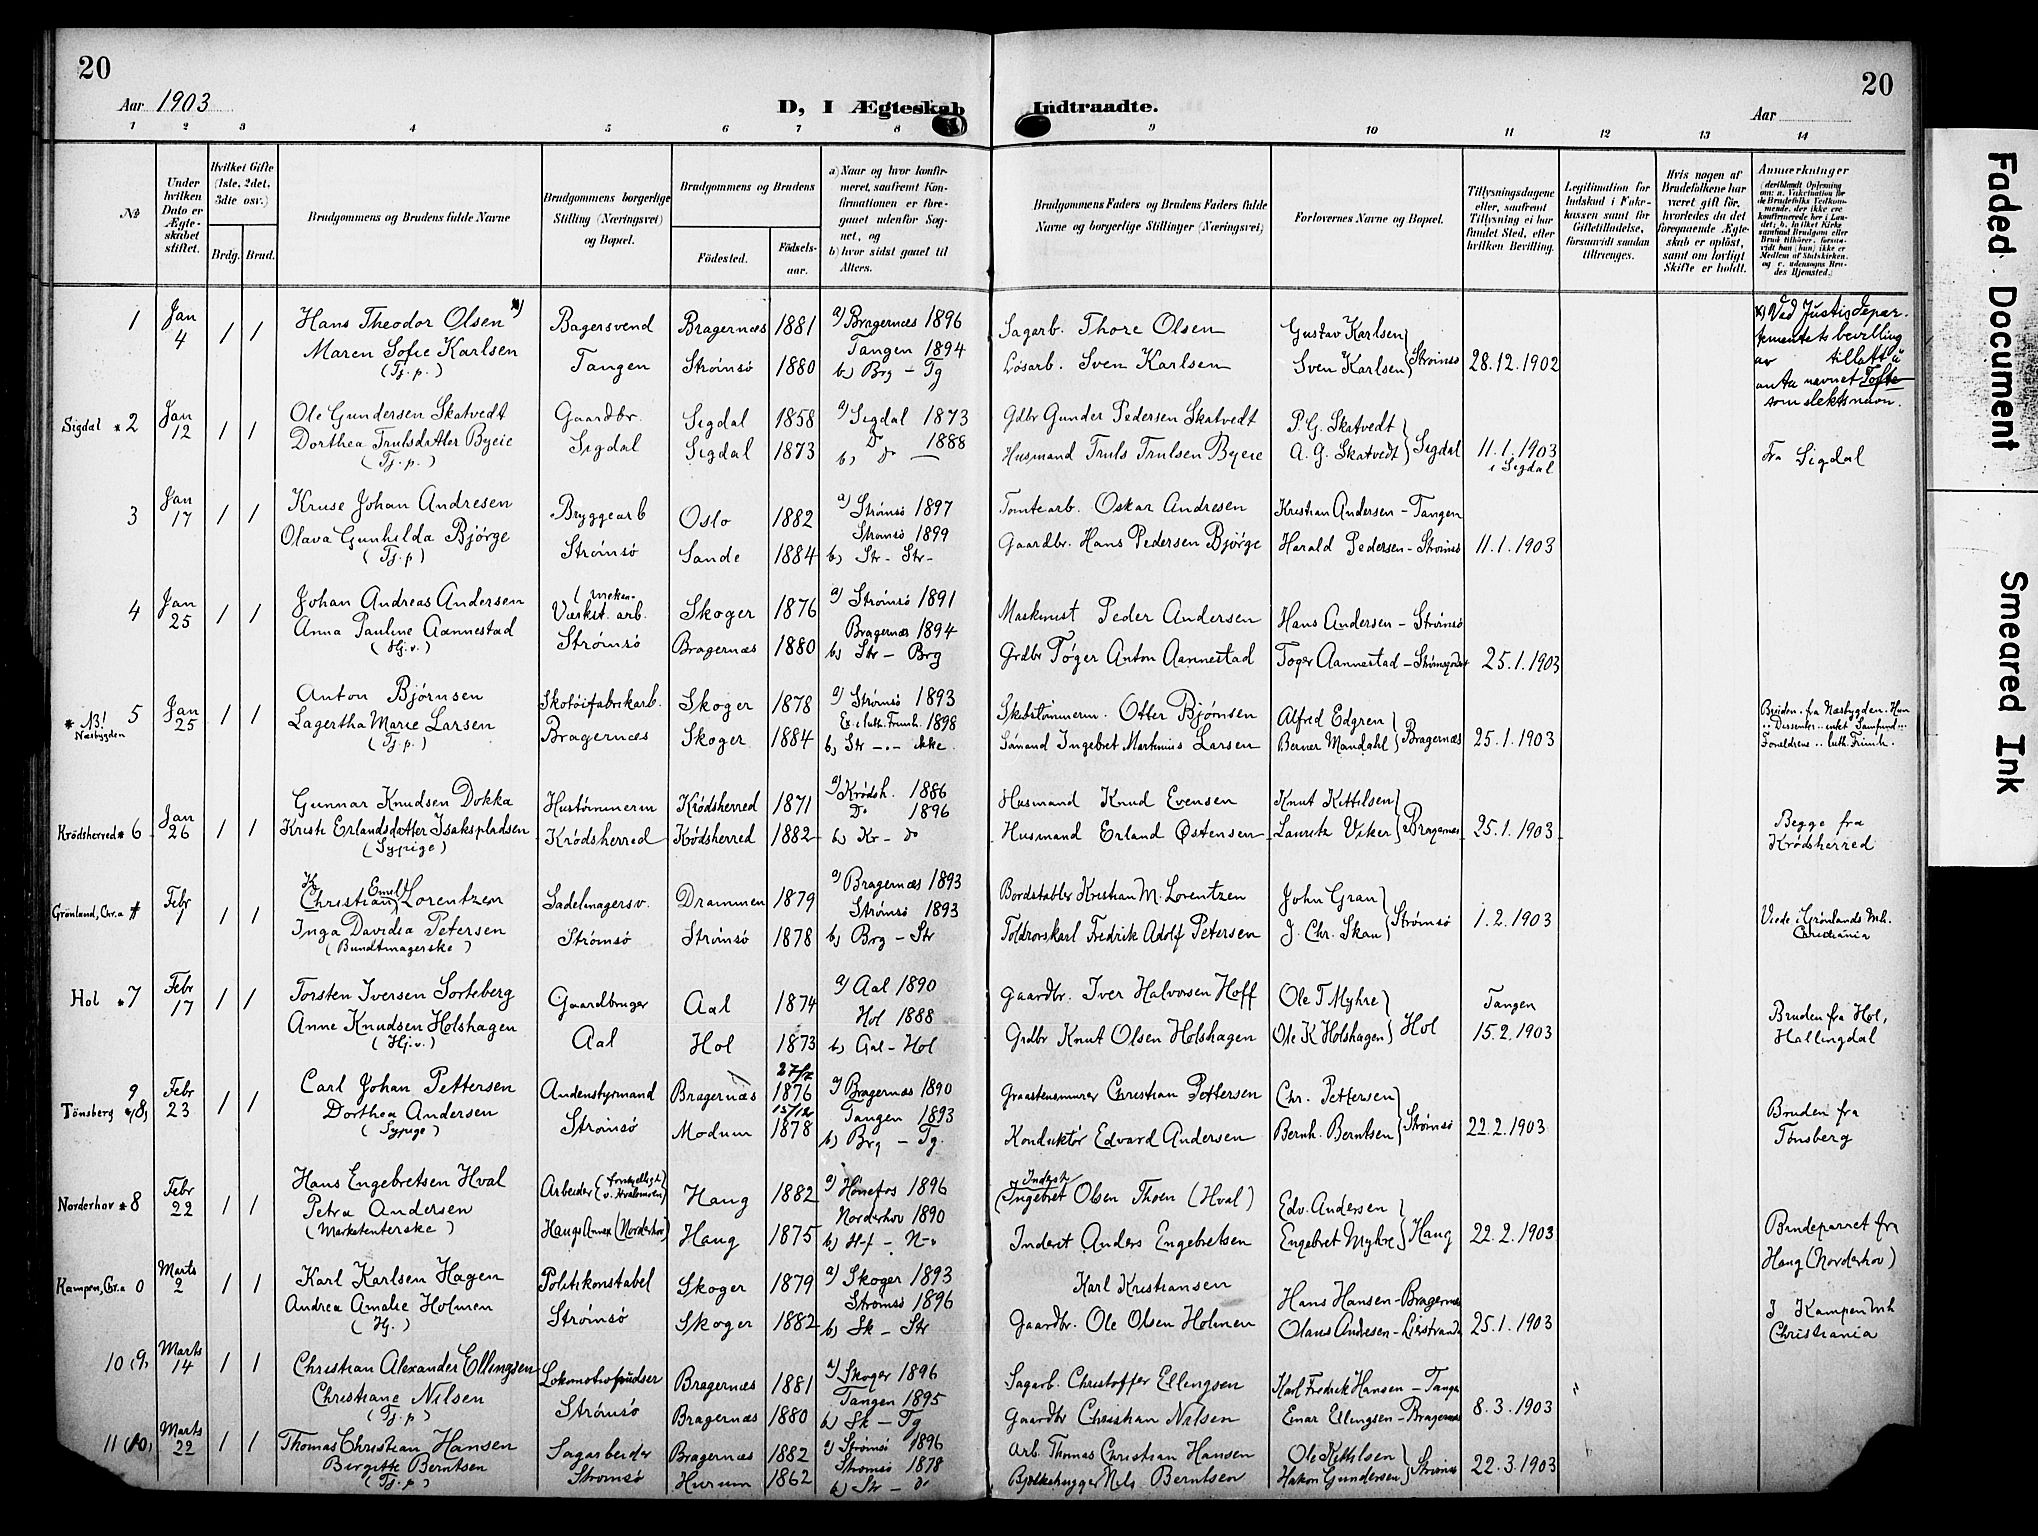 20
20
Aar 1903
D, I Ægteskab Indtraadte.
Aar
1 2 3 4 5 6 7 8 9 10 11 12 13 14
№
Under hvilken Dato er Ægteskabet stiftet.
Hvilket Gifte (1ste, 2det, 3die osv.)
Brdg. Brud.
Brudgommens og Brudens fulde Navne
Brudgommens borgerlige Stilling (Næringsvei) og Bopæl.
Brudgommens og Brudens
Fødested.
Födselsaar.
a) Naar og hvor konfirmeret, saafremt Konfirmationen er foregaaet udenfor Sognet, og
b) hvor sidst gaaet til Alters.
Brudgommens Faders og Brudens Faders fulde Navne og borgerlige Stillinger (Næringsvei)
Forlovernes Navne og Bopæl.
Tillysningsdagene eller, saafremt Tillysning ei har fundet Sted, efter hvilken Bevilling.
Legitimation for Indskud i Enkekassen samt for Giftetilladelse, forsaavidt saadan tiltrænges.
Hvis nogen af Brudefolkene har været gift før, hvorledes da det foregaaende Ægteskab er opløst, samt om lovligt Skifte er holdt.
Anmerkninger
1 Jan 4 1 1 Hans Theodor Olsen x) Bagersvend Bragernæs 1881 a) Bragernæs 1896 Sagarb. Thore Olsen Gustav Karlsen
Maren Sofie Karlsen (Tj.p.) Tangen Strømsö 1880 Tangen 1894 b) Brg - Tg Løsarb. Sven Karlsen Sven Karlsen Strømsö 28.12.1902
x) Ved Justisdepartementets bevilling av tillatt å anta navnet Tofte som slektsnavn.
Sigdal * 2 Jan 12 1 1 Ole Gundersen Skatvedt Gaardbr. Sigdal 1858 a) Sigdal 1873 Gdbr Gunder Pedersen Skatvedt P. G. Skatvedt
Dorthea Trulsdatter Byeie (Tj.p.) Sigdal Sigdal 1873 Do 1888 b) Do Husmand Truls Trulsen Byeie A. G. Skatvedt Sigdal 11.1.1903 i Sigdal Fra Sigdal
3 Jan 17 1 1 Kruse Johan Andresen Bryggearb Oslo 1882 a) Strømsö 1897 Tomtearb. Oskar Andresen Kristian Andersen - Tangen
Olava Gunhilda Bjørge (Tj.p) Strømsö Sande 1884 Strømsö 1899 b) Str - Str - Gaardbr. Hans Pedersen Bjørge Harald Pedersen - Strømsö 11.1.1903
4 Jan 25 1 1 Johan Andreas Andersen (mekan. Værkst. arb. Skoger 1876 a) Strømsö 1891 Maskinist Peder Andersen Hans Andersen - Strømsö
Anna Pauline Aannestad (Hj.v.) Strømsö Bragernæs 1880 Bragernæs 1894 b) Str - Brg Grdbr Töger Anton Aannestad Toger Aannestad - 25.1.1903
* NB! Næsbygden 5 Jan 25 1 1 Anton Bjørnsen Skotöifabrikarb. Skoger 1878 a) Strømsö 1893 Skibstømmerm. Otter Bjønsen Alfred Edgren
Lagertha Marie Larsen (Tj.p.) Bragernæs Skoger 1884 Ex. i luth. Frimh. 1898 b) Str -.- ikke. Sömand Ingebret Markinius Larsen Berner Mandahl Bragernæs 25.1.1903
Bruden fra Næsbygden.
Krödsherred * 6 Jan 26 1 1 Gunnar Knudsen Dokka Hustømmerm Krödsherred 1871 a) Krødsh. 1886 Husmand Knud Evensen Knut Kittilsen
Kristi Erlandsdatter Isakspladsen (Sypige) Krødsherred Krødsherred 1882 Do 1896 b) Kr - do Husmand Erland Østensen Lauritz Viker Bragernæs 25.1.1903 Begge fra Krødsherred
Grönland, Chr.a Febr 1 1 1 Christian Emil Lorentzen Sadelmagersv. Drammen 1879 a) Bragernæs 1893 Bordstabler Kristian M. Lorentzen John Gran
Inga Davidia Petersen (Bundtmagerske) Strømsö Strømsö 1878 Strømsö 1893 b) Brg - Str Toldrorskarl Fredrik Adolf Petersen J. Chr. Skau Strømsö 1.2.1903 Viede i Grønlands Mh. Christiania
Hol * 7 Febr 17 1 1 Torsten Iversen Sorteberg Gaardbruger Aal 1874 a) Aal 1890 Gaardbr. Iver Halvorsen Hoff Ole T Myhre Tangen
Anne Knudsen Holshagen (Hj.v.) Aal Hol 1873 Hol 1888 b) Aal - Hol Grdbr Knut Olsen Holshagen Ole K Holshagen Hol 15.2.1903 Bruden fra Hol, Hallingdal
Tönsberg 9 * (8) Febr 23 1 1 Carl Johan Pettersen Andenstyrmand Bragernæs 27/7 1876 a) Bragernæs 1890 Graastensmurer Christian Pettersen Chr. Pettersen
Dorthea Andersen (Sypige) Strømsö Modum 15/12 1878 Tangen 1893 b) Brg - Tg. Konduktør Edvard Andersen Bernh. Berntsen Strømsö 22.2.1903 Bruden fra Tønsberg
Norderhov * 8 Febr 22 1 1 Hans Engebretsen Hval Arbeider Haug 1882 a) Hönefos 1896 Inderst (Ingebret Olsen Thoen (Hval) Edv. Andersen
Petra Andersen (Marketenterske) Haugs Annex (Norderhov) Haug 1875 Norderhov 1890 b) H-f - N-v Inderst Anders Engebretsen Engebret Myhre Haug 22.2.1903 Brudeparret fra Haug (Norderhov)
Kampen, Chr.a 0 Marts 2 1 1 Karl Karlsen Hagen Politikonstabel Skoger 1879 a) Skoger 1893 Karl Kristiansen Hans Hansen - Bragernæs
Andrea Amalie Holmen (Hj.) Strømsö Skoger 1882 Strømsö 1896 b) Sk - Str Gaardbr. Ole Olsen Holmen Olaus Andresen - Lierstranda 25.1.1903 I Kampen Mk Christiania
10 (9) Marts 14 1 1 Christian Alexander Ellingsen Lokomotivpudser Bragernæs 1881 a) Skoger 1896 Sagarb. Christoffer Ellingsen Karl Fredrik Hansen - Tangen
Christiane Nilsen (Tj.p) Strømsö Bragernæs 1880 Tangen 1895 b) Sk - Tg Gaardbr Christian Nilsen Einar Ellingsen - Bragernæs 8.3.1903
11 (10) Marts 22 1 1 Thomas Christian Hansen Sagarbeider Bragernæs 1882 a) Strømsö 1896 Arb. Thomas Christian Hansen Ole Kittilsen
Birgitte Berntsen (Tj.p) Strømsö Hurum 1862 Strømsö 1878 b) Str - do Bjelkehugger Nils Berntsen Hakon Gundersen Strømsö 22.3.1903
Faded Document
Smeared Ink